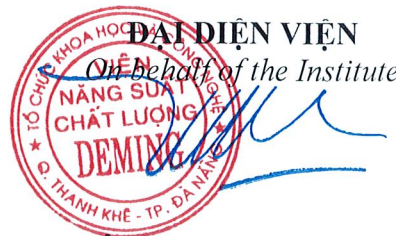 ĐẠI DIỆN VIỆN
On behalf of the Institute
TỔ CHỨC KHOA HỌC VÀ CÔNG NGHỆ
VIỆN
NĂNG SUẤT
CHẤT LƯỢNG
DEMING
Q. THANH KHÊ - TP. ĐÀ NẴNG